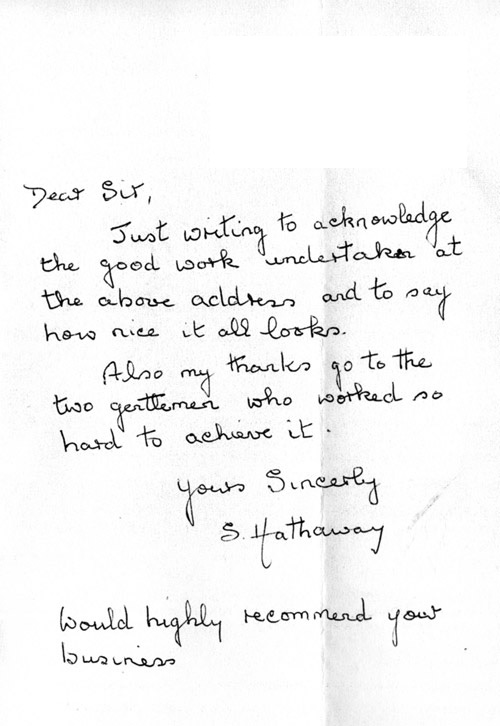 Dear Sir,
Just writing to acknowledge
the good work undertaken at
the above address and to say
how nice it all looks.
Also my thanks go to the
two gentlemen who worked so
hard to achieve it.
Yours Sincerly
S. Hathaway
Would highly recommend your
business